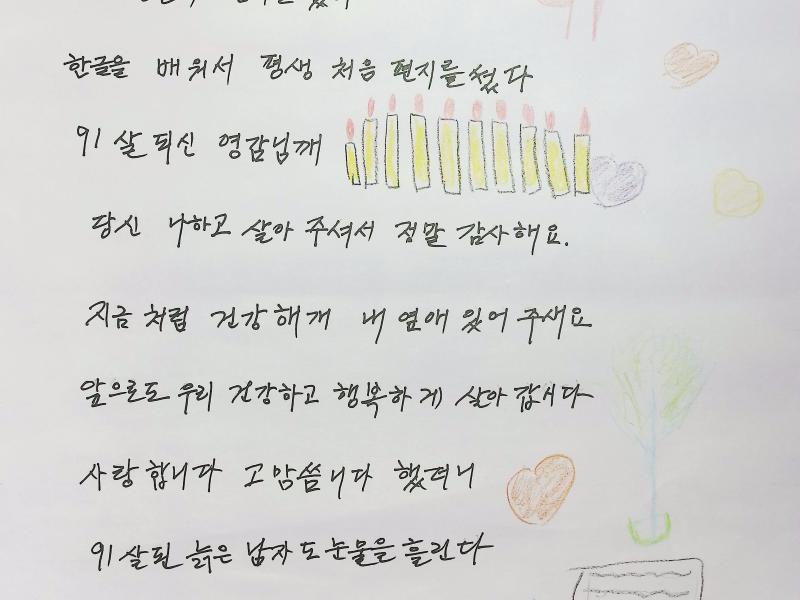 한글을 배워서 평생 처음 편지를 썼다
91살 되신 영감님께
당신 나하고 살아 주셔서 정말 감사해요.
지금 처럼 건강해개 내 옆애 있어 주새요
앞으로도 우리 건강하고 행복하게 살아 갑시다
사랑합니다 고맘씀니다 했더니
91살된 늙은 남자도 눈물을 흘린다